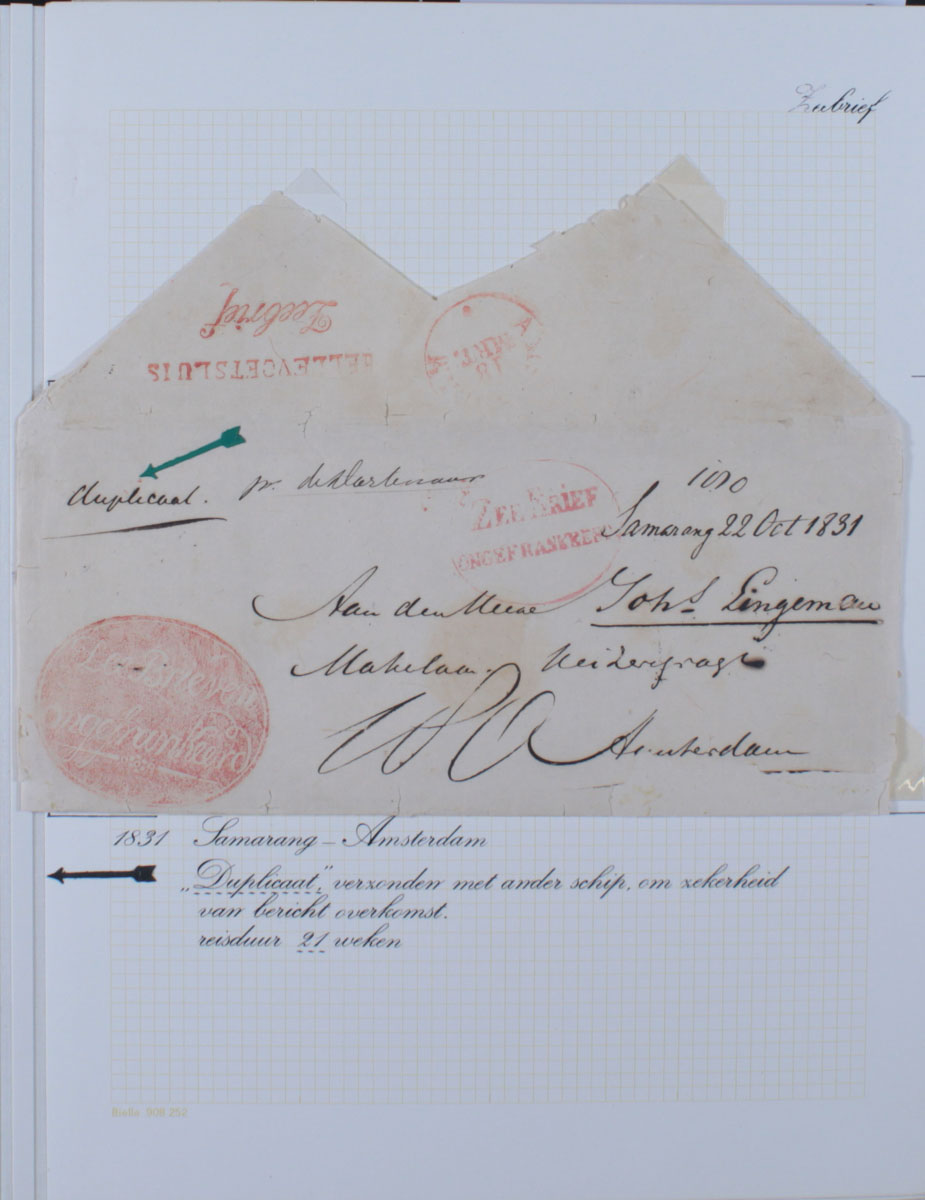 Zeebrief
Zeebrief
HELLEVOETSLUIS
18
MRT.
duplicaat. pr.
1080
ZEE BRIEF
ONGEFRANKEERD
Samarang 22 Oct 1831
Aan den Heere Johs Lingeman
Makelaar. Keizersgragt
Amsterdam
1831 Samarang - Amsterdam
„Duplicaat", verzonden met ander schip, om zekerheid
van bericht overkomst.
reisduur 21 weken
Biella 908 252